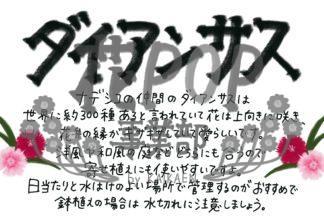 ダイアンサス
ナデシコの仲間のダイアンサスは
世界に約300種あると言われていて花は上向きに咲き、
花弁の縁がギザギザしていて愛らしいです。
洋風や和風の庭などどちらにも合うので
寄せ植えにも使いやすいですよ。
日当たりと水はけのよい場所で管理するのがおすすめで
鉢植えの場合は水切れに注意しましょう。